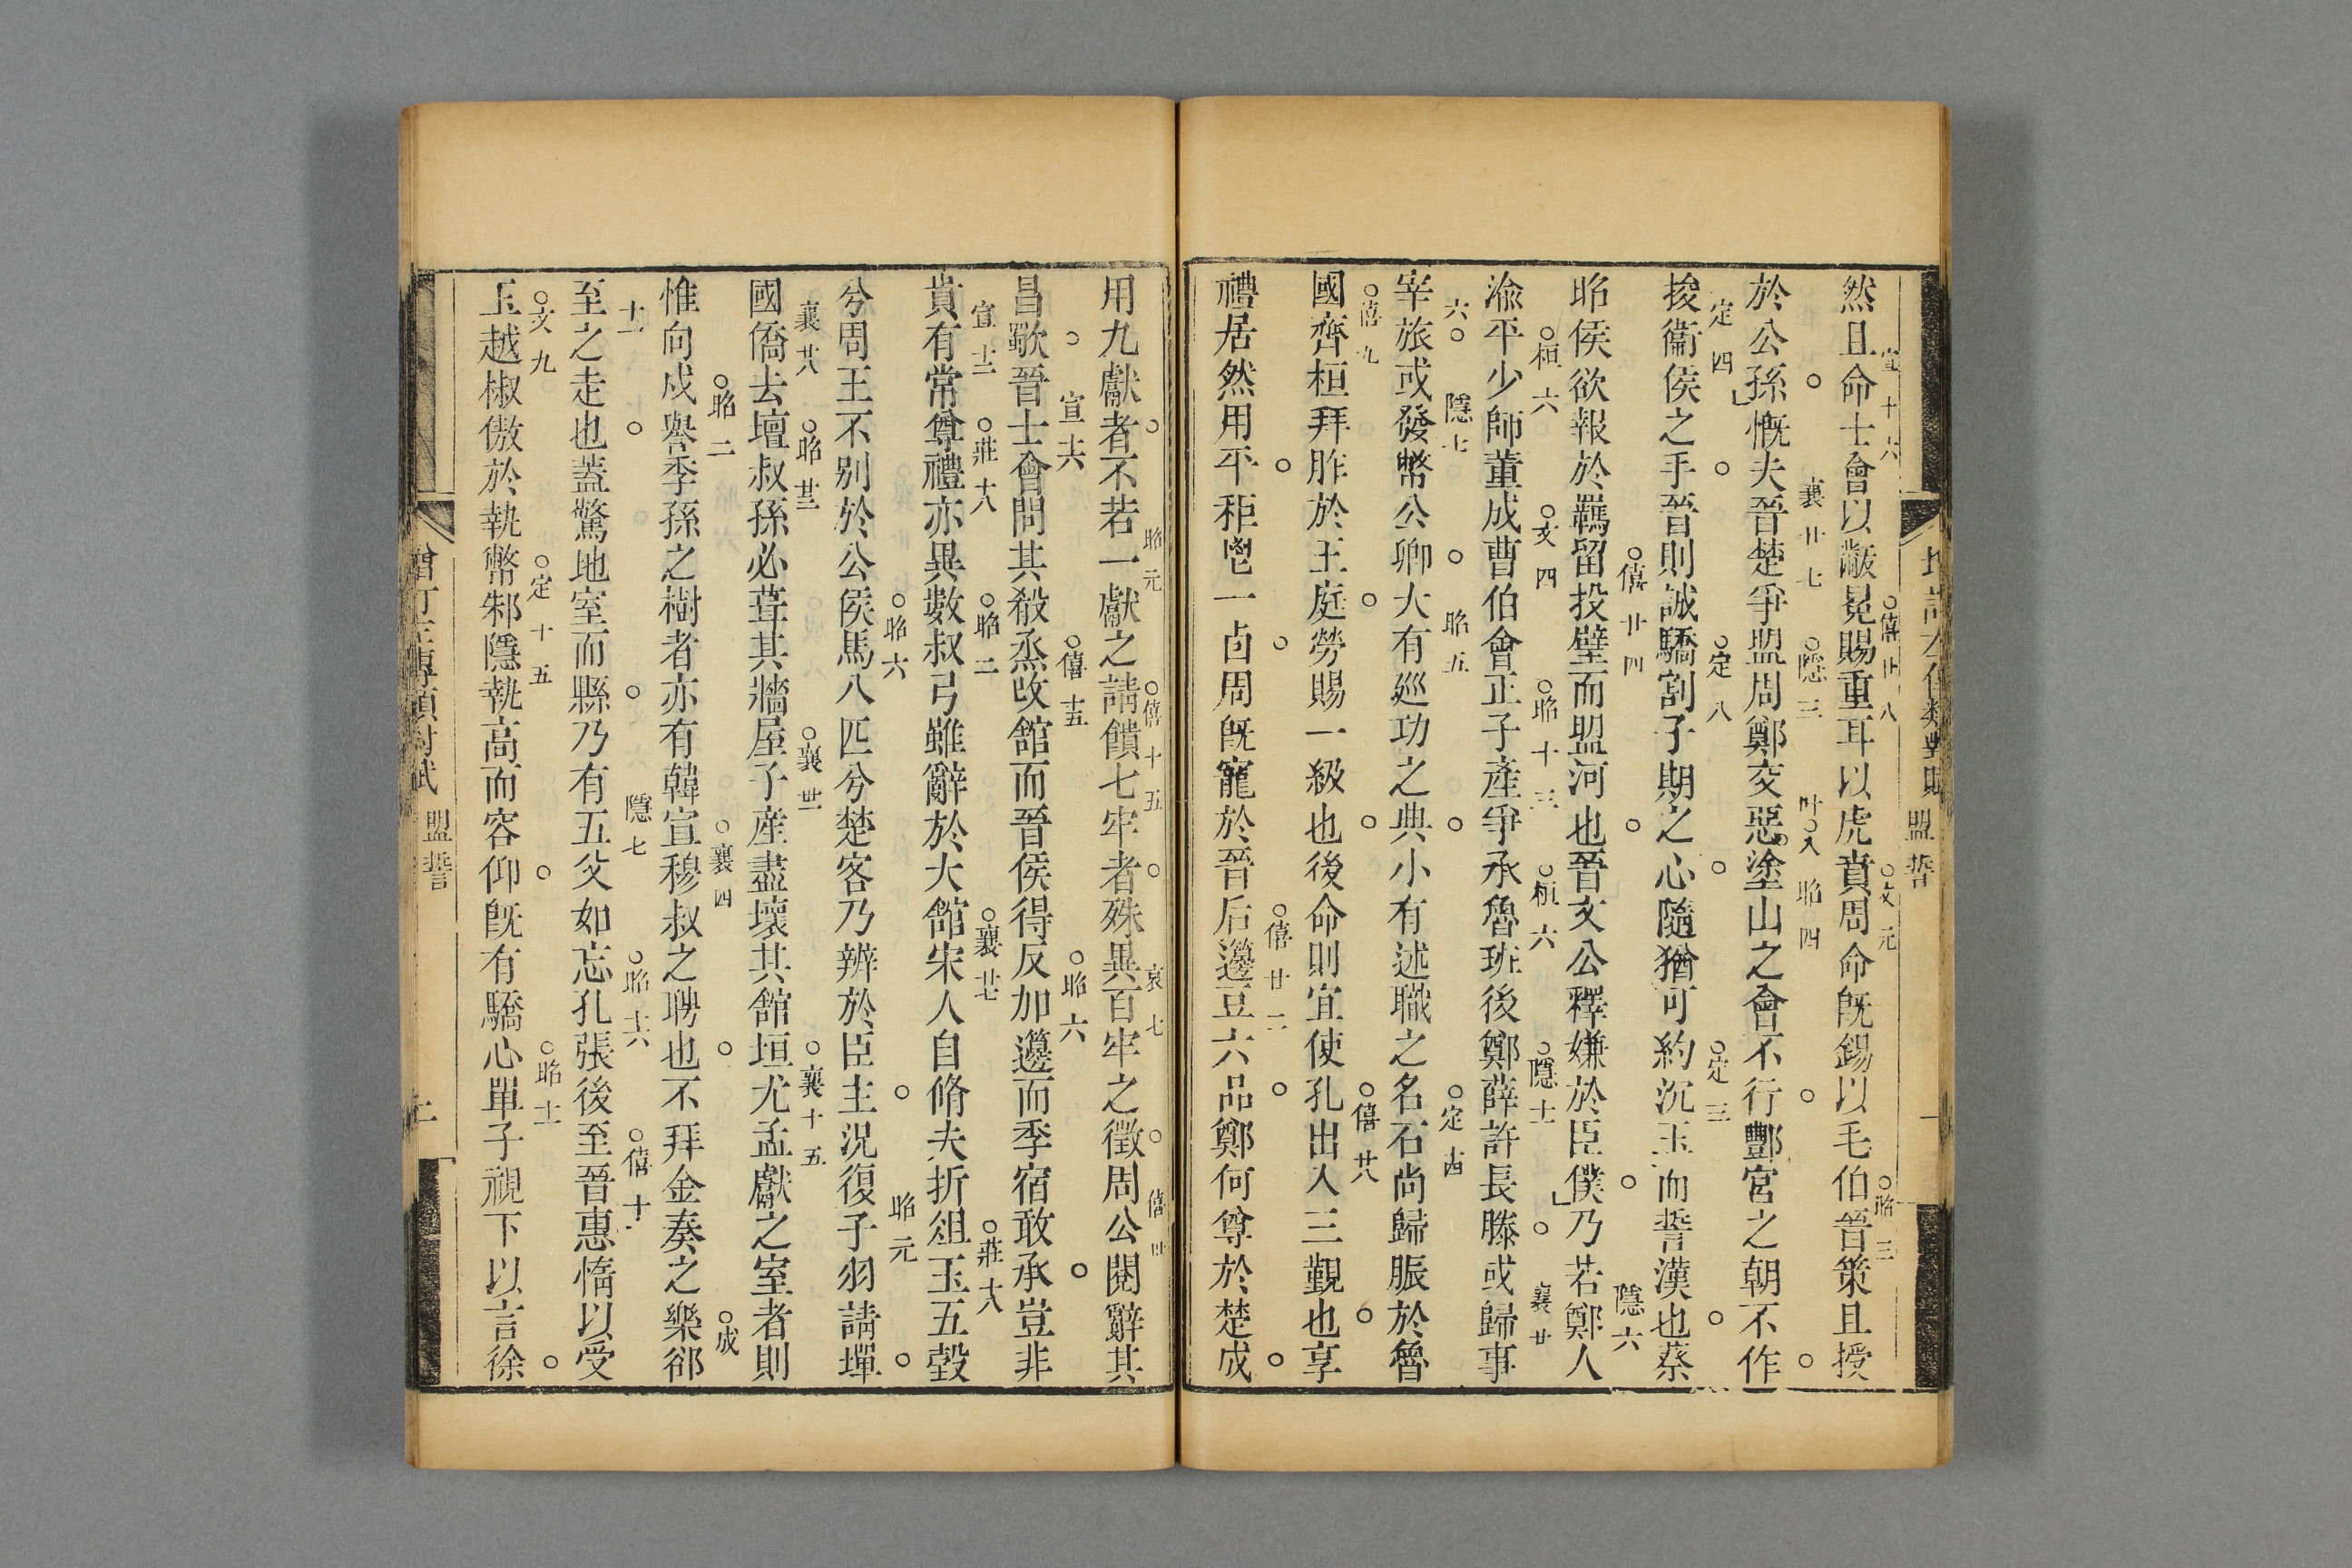 宣十六　僖廿八　文元　昭三
然且命士會以黻冕賜重耳以虎賁周命旣錫以毛伯晉策且授
襄廿七　隱三　叶入　昭四
於公孫慨夫晉楚爭盟周鄭交惡塗山之會不行酆宮之朝不作
定四　定八　定三
捘衞侯之手晉則誠驕割子期之心隨猶可約沉玉而誓漢也蔡
僖廿四　隱六
昭侯欲報於羈留投璧而盟河也晉文公釋嫌於臣僕乃若鄭人
桓六　文四　昭十三　桓六　隱十一　襄廿
渝平少師董成曹伯會正子產爭承魯班後鄭薛許長滕或歸事
六　隱七　昭五　定十四
宰旅或發幣公卿大有廵功之典小有述職之名石尚歸脤於魯
僖九　僖廿八
國齊桓拜胙於王庭勞賜一級也後命則宜使孔出入三覲也享
僖廿二
禮居然用平秬鬯一卣周旣寵於晉后籩豆六品鄭何尊於楚成
盟誓
昭元　僖十五　哀七　僖卅
用九獻者不若一獻之請饋七牢者殊異百牢之徵周公閱辭其
宣十六　僖十五　昭六
昌歜晉士會問其殽烝攺館而晉侯得反加籩而季宿敢承豈非
宣十二　莊十八　昭二　襄廿七　莊十八
貴有常尊禮亦異數叔弓雖辭於大館宋人自脩夫折俎玉五瑴
昭六　昭元
兮周王不別於公侯馬八匹兮楚客乃辨於臣主況復子羽請墠
襄廿八　昭廿三　襄卅一　襄十五
國僑去壇叔孫必葺其牆屋子產盡壞其館垣尤孟獻之室者則
昭二　襄四　成
惟向戍譽季孫之樹者亦有韓宣穆叔之聘也不拜金奏之樂郤
十二　隱七　昭十六　僖十一
至之走也蓋驚地室而縣乃有五父如忘孔張後至晉惠惰以受
文九　定十五　昭十一
玉越椒傲於執幣邾隱執高而容仰旣有驕心單子視下以言徐
盟誓